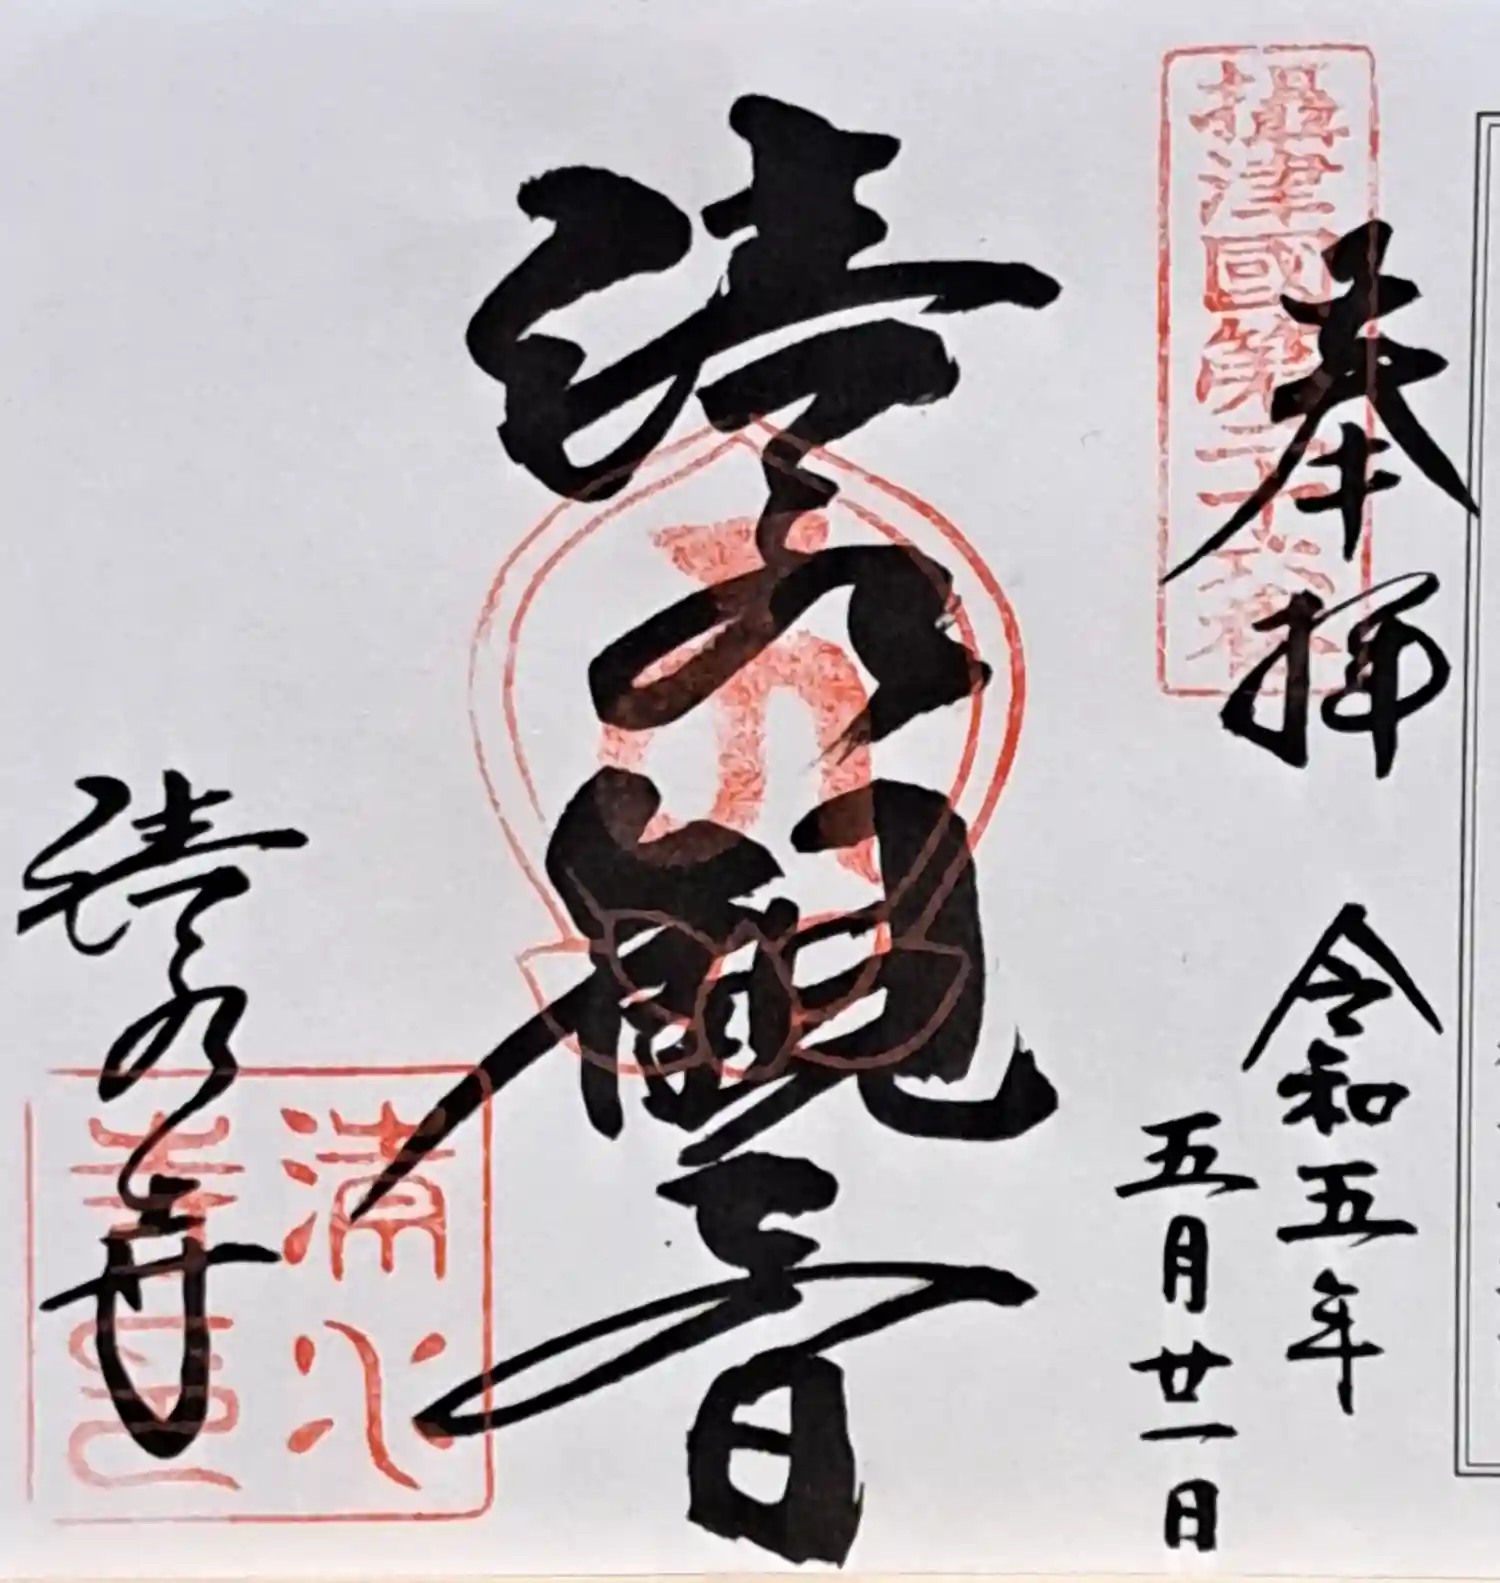 攝津國第二十六番
奉拝
令和五年
五月廿一日
清水觀音
清水寺
清水
寺印